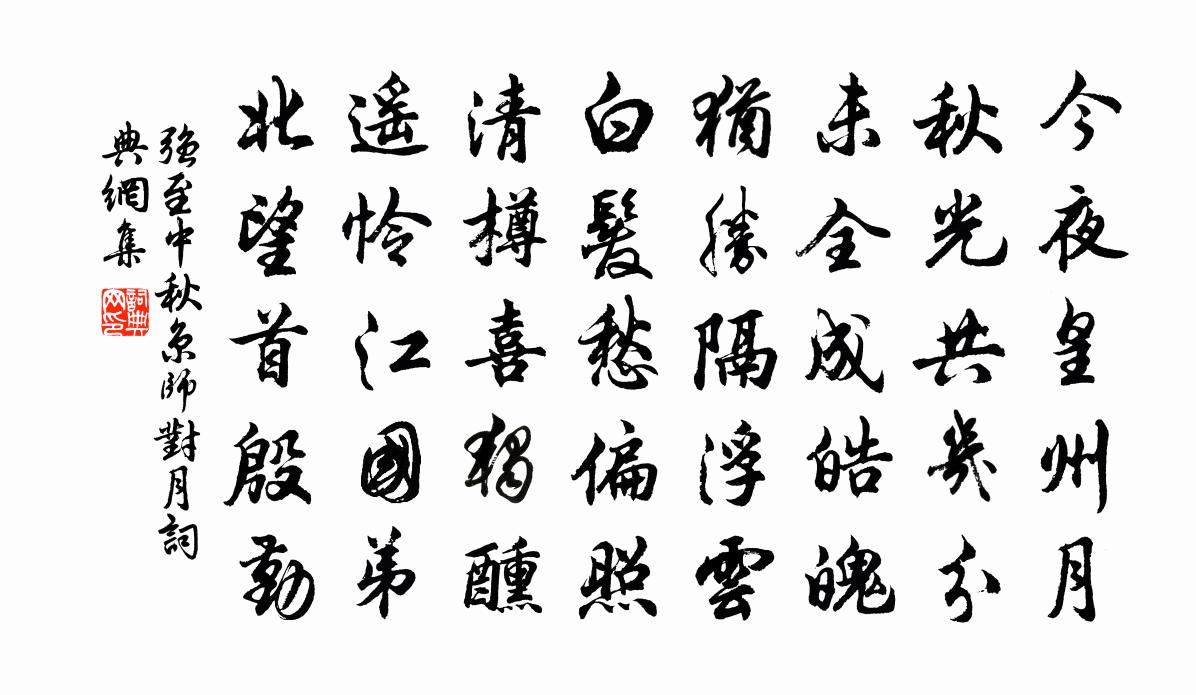 今夜皇州月
秋光共幾分
未全成皓魄
猶勝隔浮雲
白髮愁偏照
清樽喜獨醺
遥怜江國弟
北望首殷勤
強至中秋京師對月詞
典網集
詞典
网印